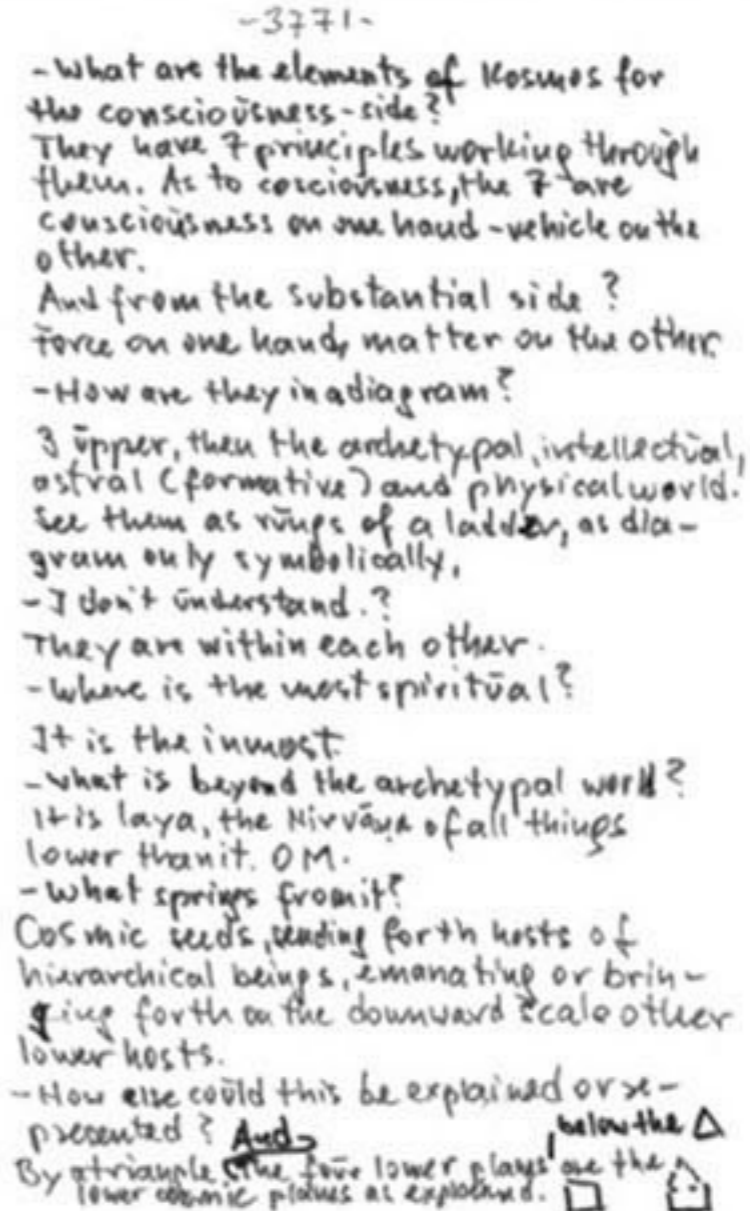 -3771-
-What are the elements of Kosmos for
the conscioūsness-side?
They have 7 principles working throūgh
them. As to cosciousness, the 7 are
conscioūsness on one hand-vehicle on the
other.
And from the substantial side?
Force on one hand, matter on the other.
-How are they in a diagram?
3 ūpper, then the archetypal, intellectūal,
astral (formative) and physical world.
See them as rūngs of a ladder, as dia-
gram only symbolically.
-I don't ūnderstand.?
They are within each other.
-Where is the most spiritūal?
It is the inmost.
-What is beyond the archetypal world?
It is laya, the Nirvāna of all things
lower than it. OM.
-What springs from it?
Cosmic seeds, sending forth hosts of
hierarchical beings, emanating or brin-
ging forth on the downward scale other
lower hosts.
-How else coūld this be explained or re-
presented? And
below the △
By a triangle, the foūr lower are the
lower cosmic planes as explained.